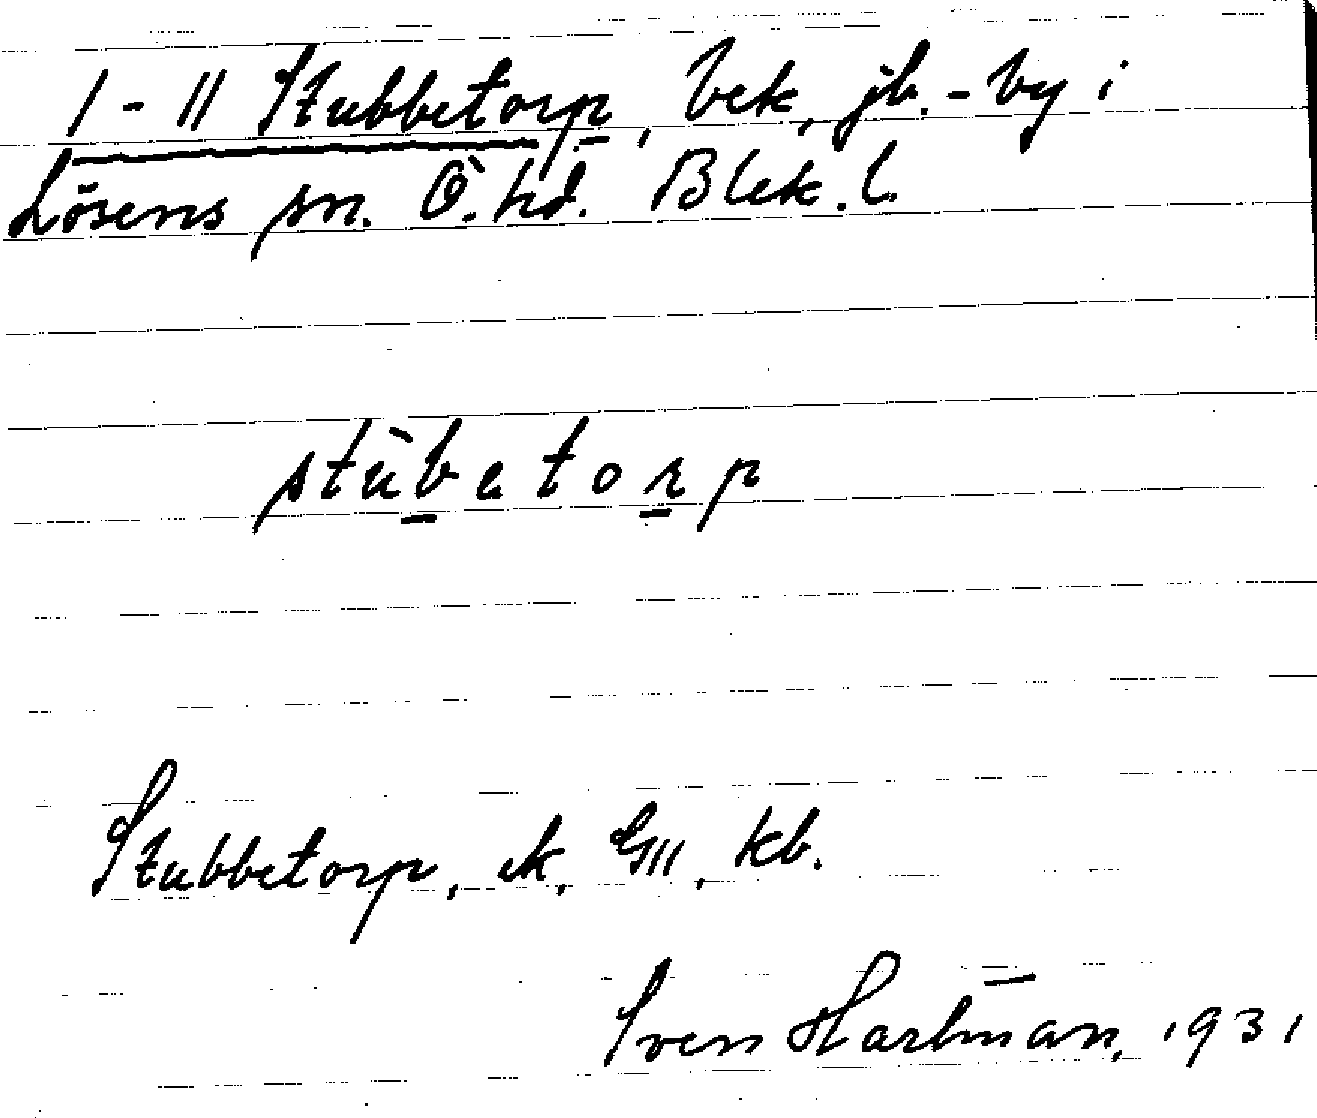 1-11 Stubbetorp, bek, jb.-by i
Lösens sn. Ö. hd. Blek. l.
stùbetorp
Stubbetorp, ek, GIII, kb.
Sven Hartman, 1931